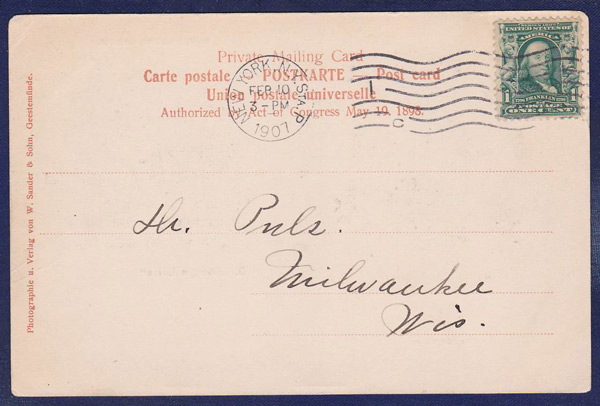 Private Mailing Card
Carte postale — POSTKARTE — Post card
Union postale universelle
Authorized by Act of Congress May 19. 1898.
NEW YORK, N.Y. STA. P
FEB 10
3-PM
1907
1
C
UNITED STATES OF
AMERICA
FRANKLIN
POSTAGE
1 ONE CENT 1
Hr. Puls.
Milwaukee
Wis.
Photographie u. Verlag von W. Sander & Sohn, Geestemünde.